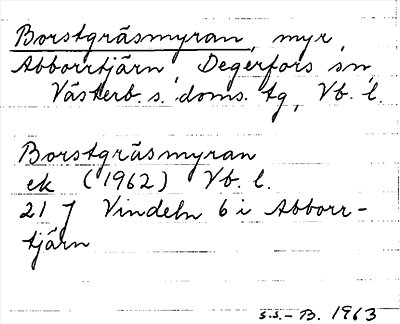 Borstgräsmyran, myr,
Abborrtjärn, Degerfors sn,
Västerb. s. doms. tg, Vb. l.
Borstgräsmyran
ek (1962) Vb. l.
21 J Vindeln 6 i Abborr-
tjärn
s.s.-B. 1963